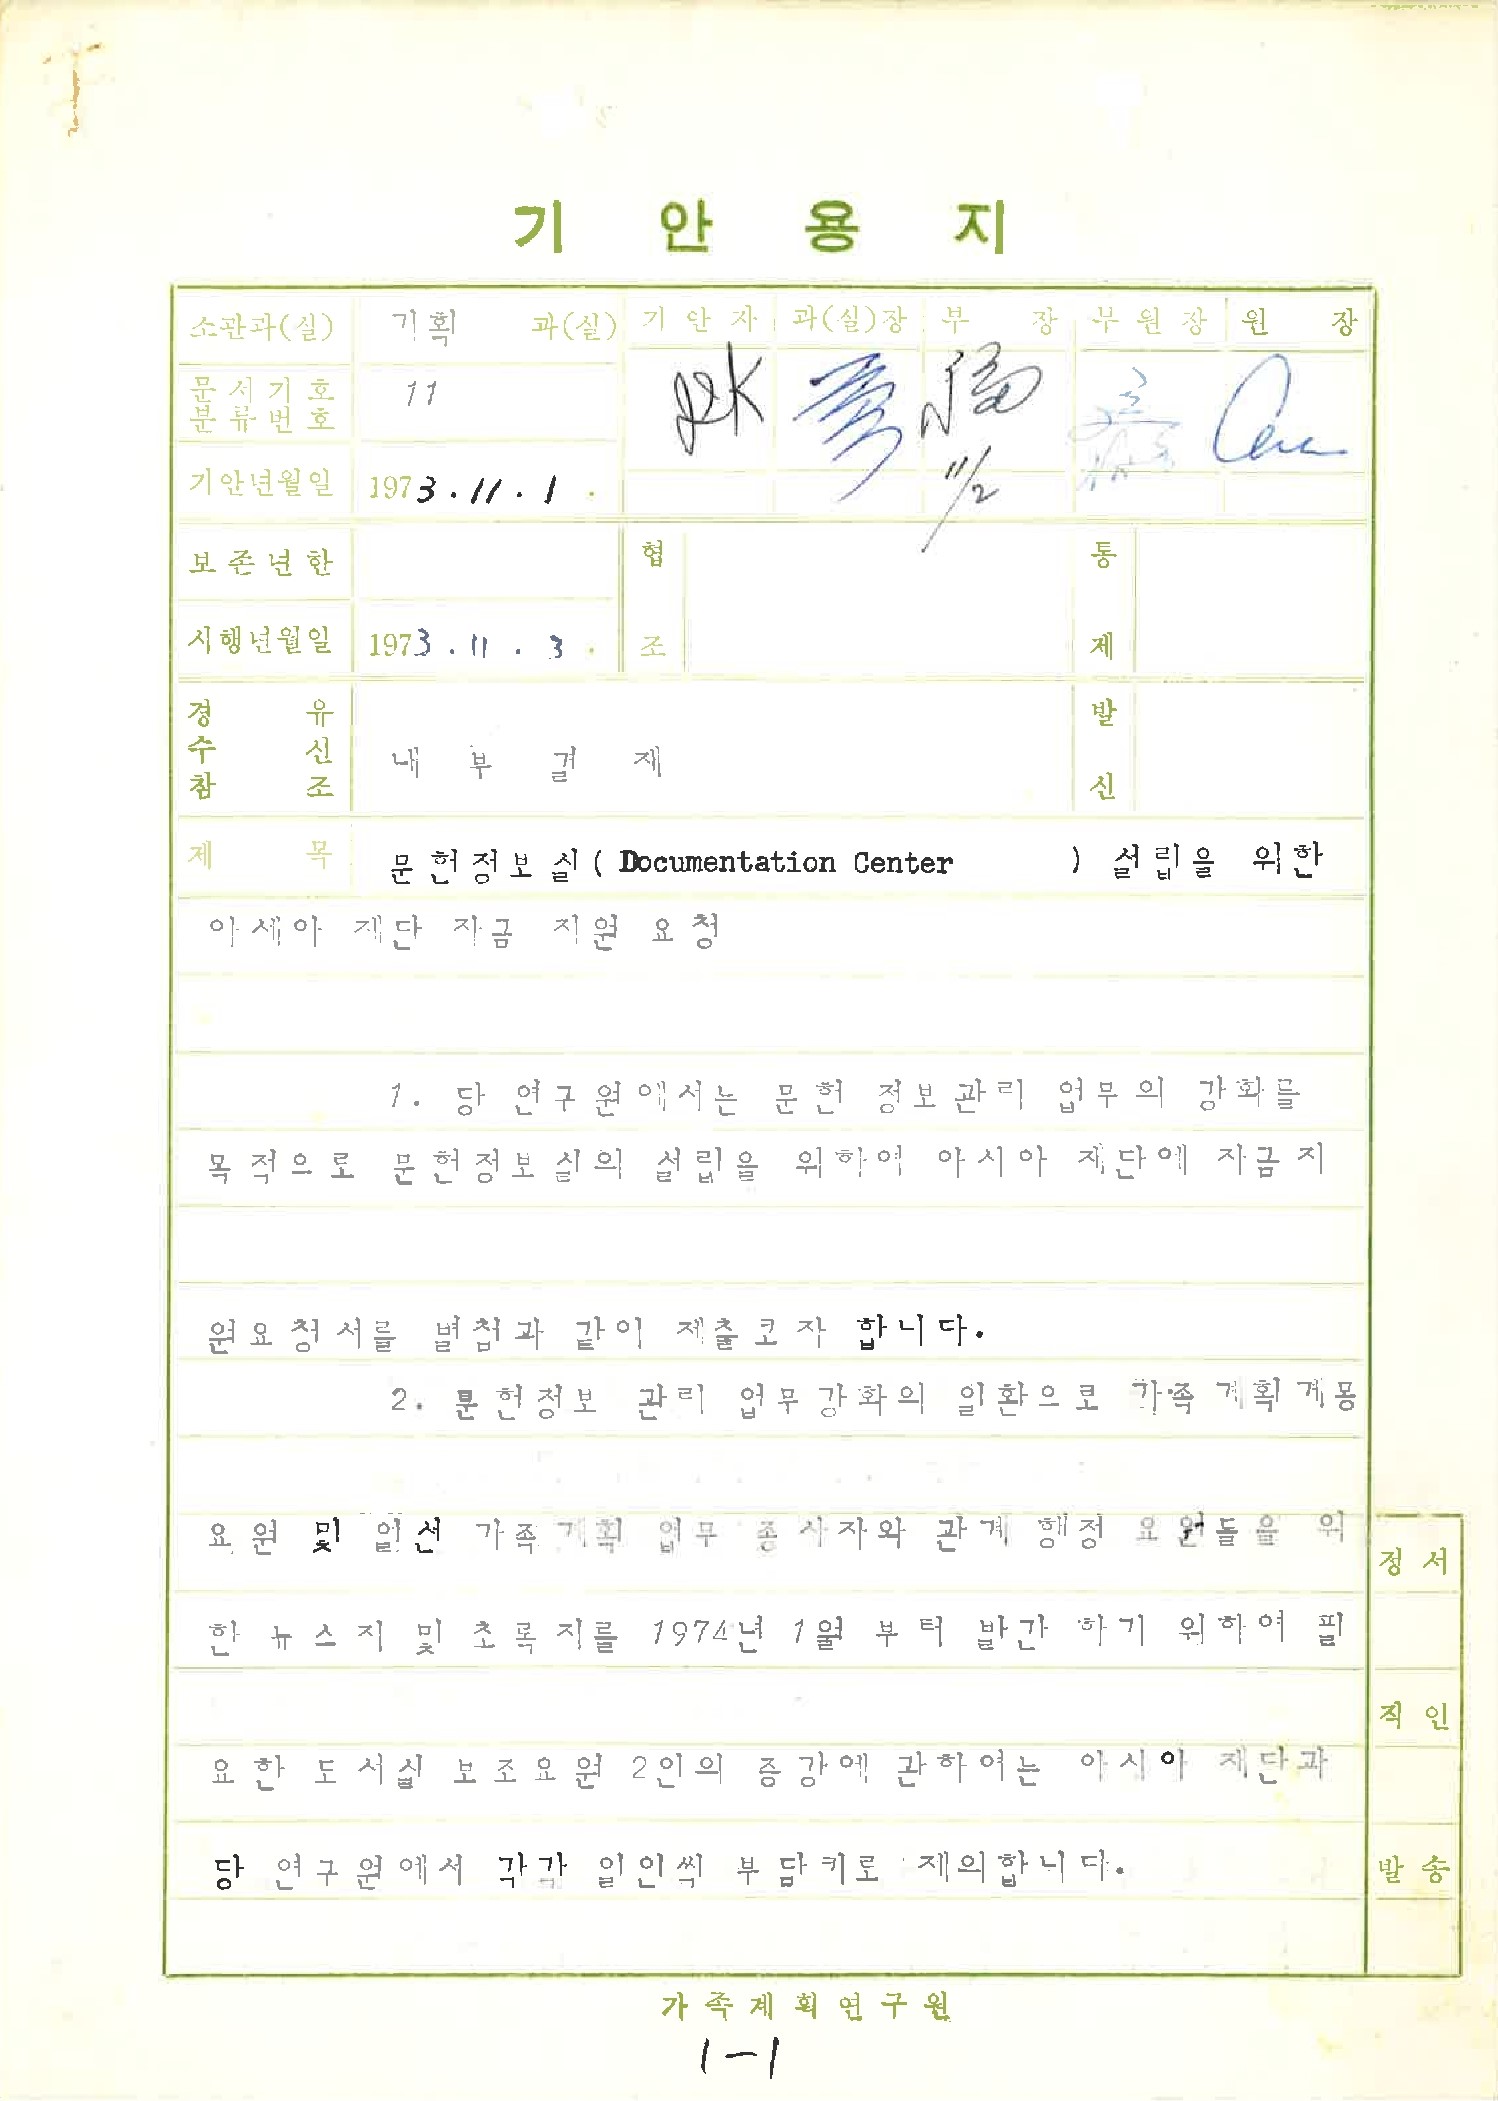 기 안 용 지
소관과(실) 기획 과(실) 기 안 자 과(실)장 부 장 부 원 장 원 장
문 서 기 호
분 류 번 호 11
기안년월일 1973.11.1.
11/2
보 존 년 한 협 조 통 제
시행년월일 1973.11.3.
경 유
수 신 내 부 결 재
참 조
발 신
제 목 문헌정보실(Documentation Center ) 설립을 위한
아세아 재단 자금 지원 요청
1. 당 연구원에서는 문헌 정보관리 업무의 강화를
목적으로 문헌정보실의 설립을 위하여 아시아 재단에 자금지
원요청서를 별첨과 같이 제출코자 합니다.
2. 문헌정보 관리 업무강화의 일환으로 가족계획계몽
요원 및 일선 가족계획 업무 종사자와 관계 행정 요원들을 위
정 서
한 뉴스지 및 초록지를 1974년 1월 부터 발간 하기 위하여 필
직 인
요한 도서실 보조요원 2인의 증강에 관하여는 아시아 재단과
당 연구원에서 각각 일인씩 부담키로 제의합니다.
발 송
가족계획연구원
1-1